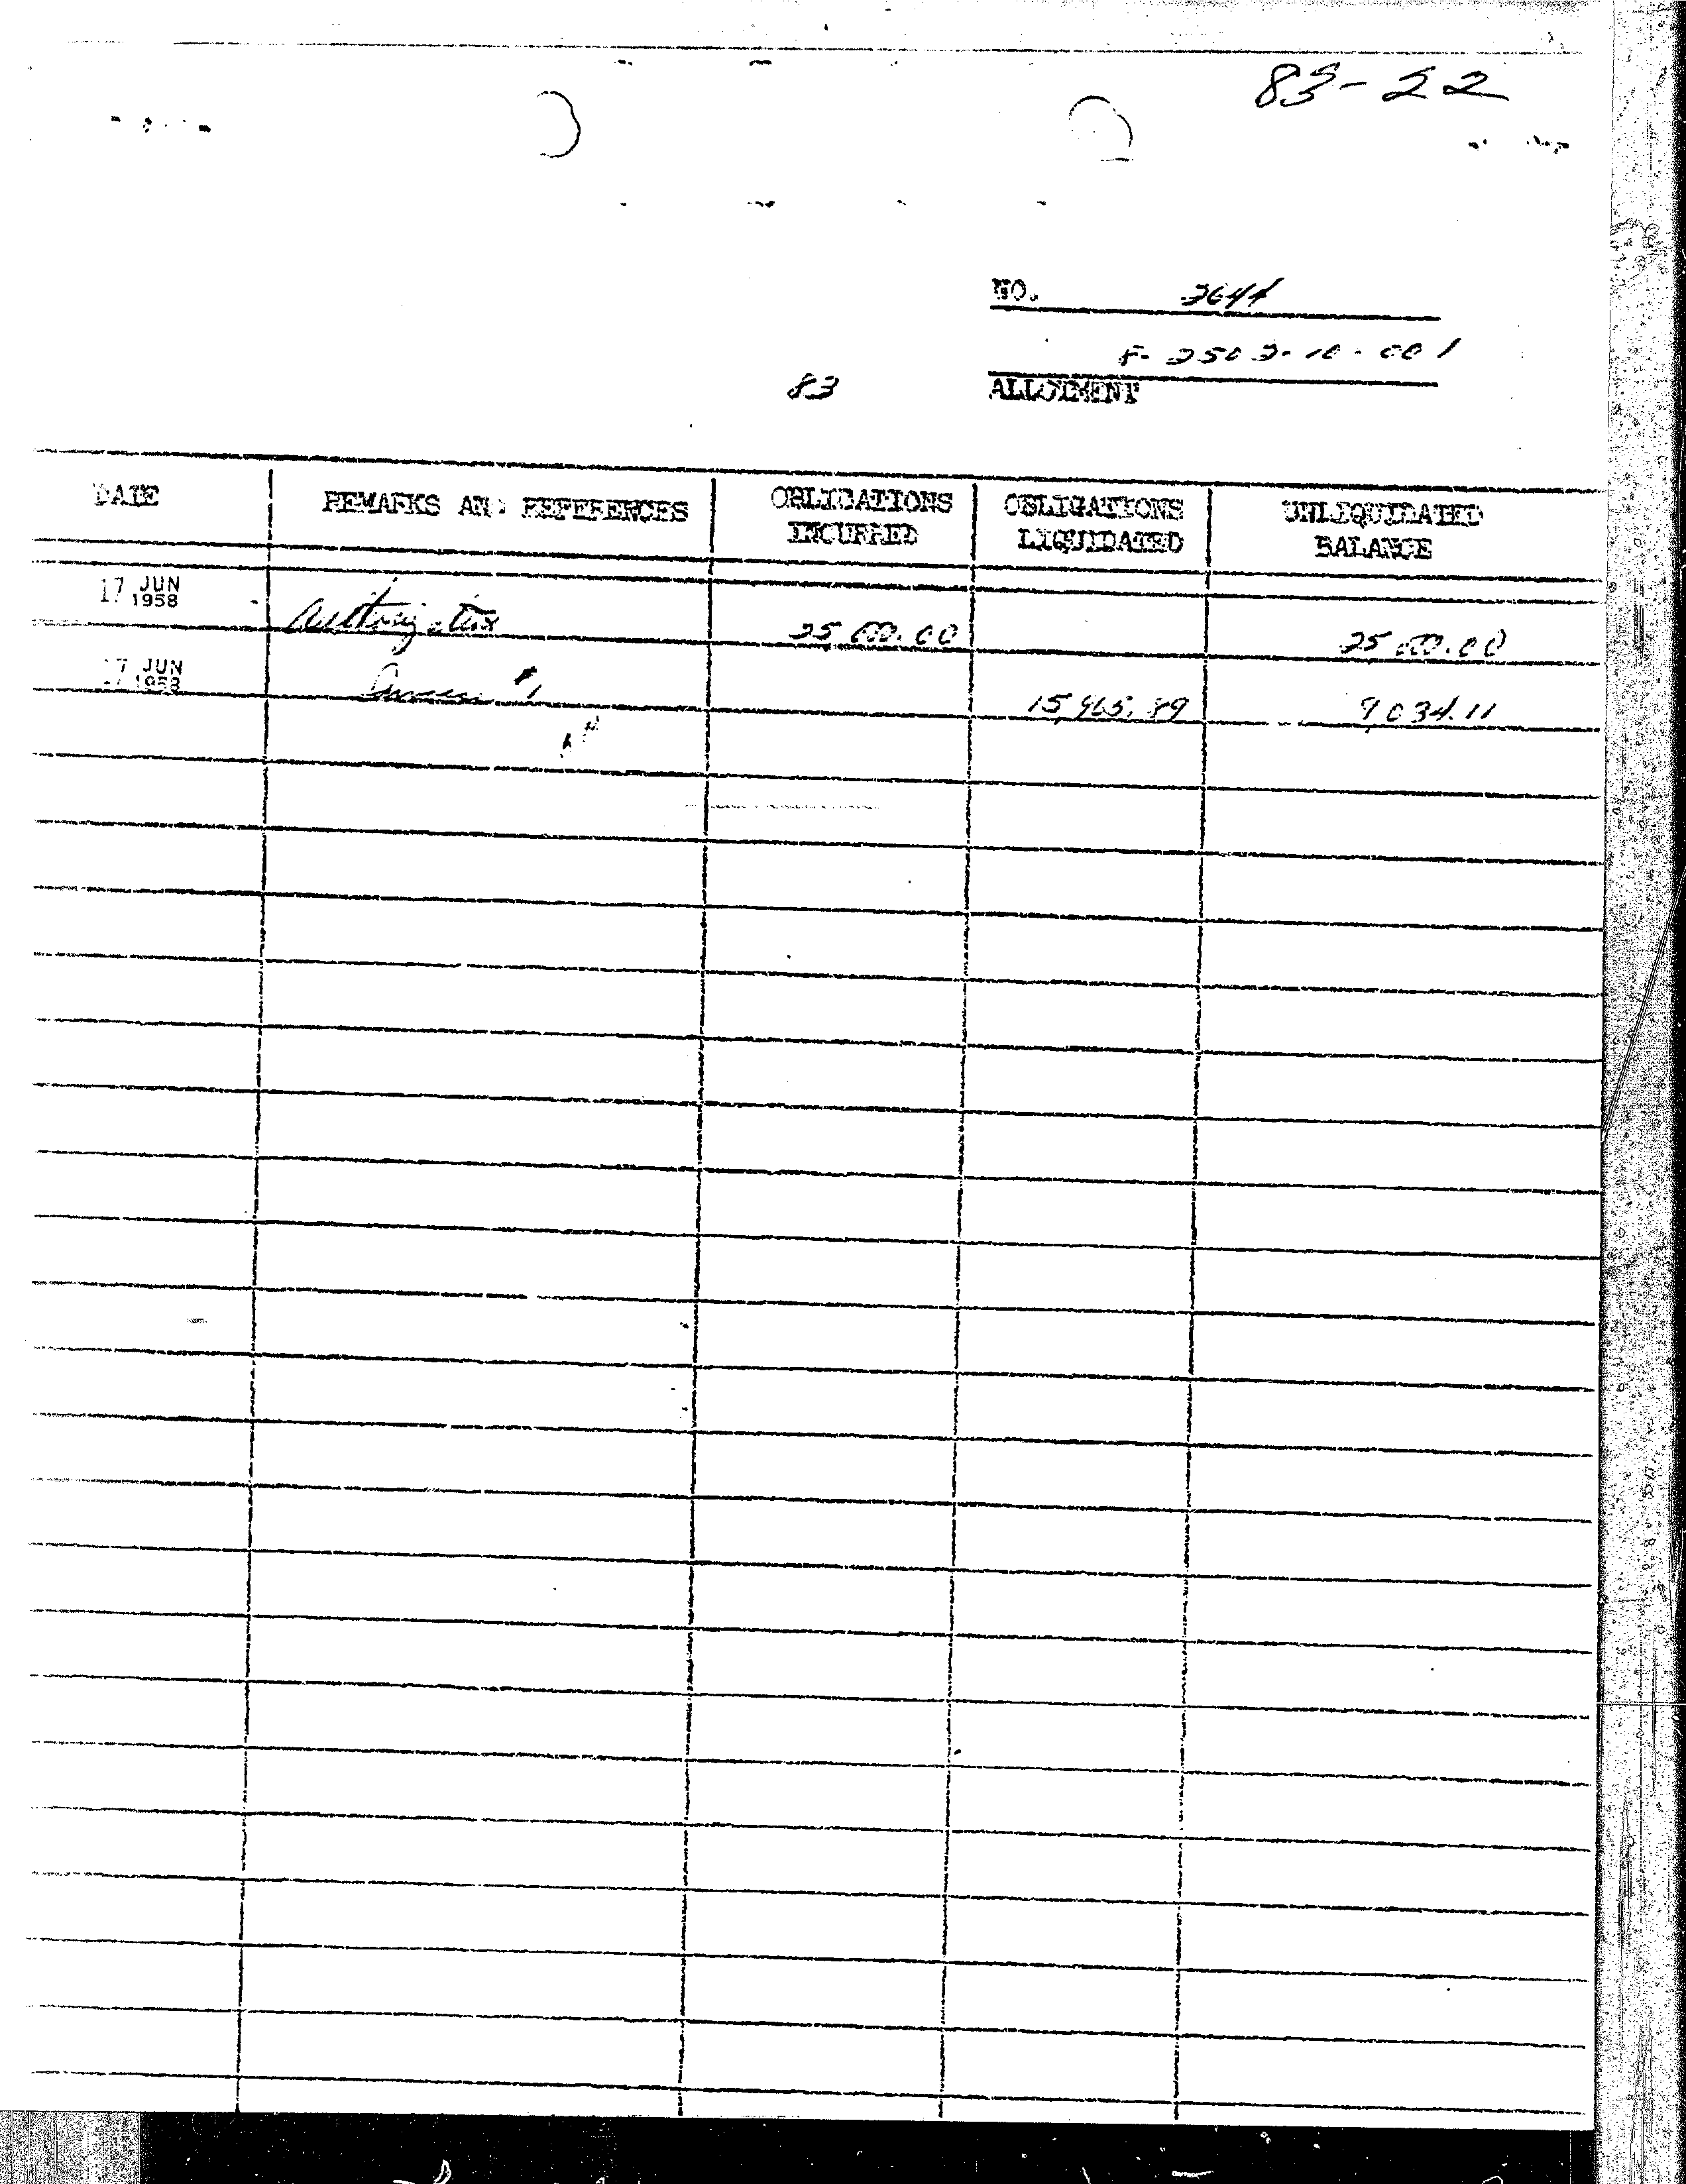 83-22
NO. 2644
F-2502-10-001
83 ALLOTMENT
DATE REMARKS AND REFERENCES OBLIGATIONS INCURRED OBLIGATIONS LIQUIDATED UNLIQUIDATED BALANCE
17 JUN 1958 Authorization 25,000.00 25,000.00
17 JUN 1958 #1 15,965.89 9,034.11